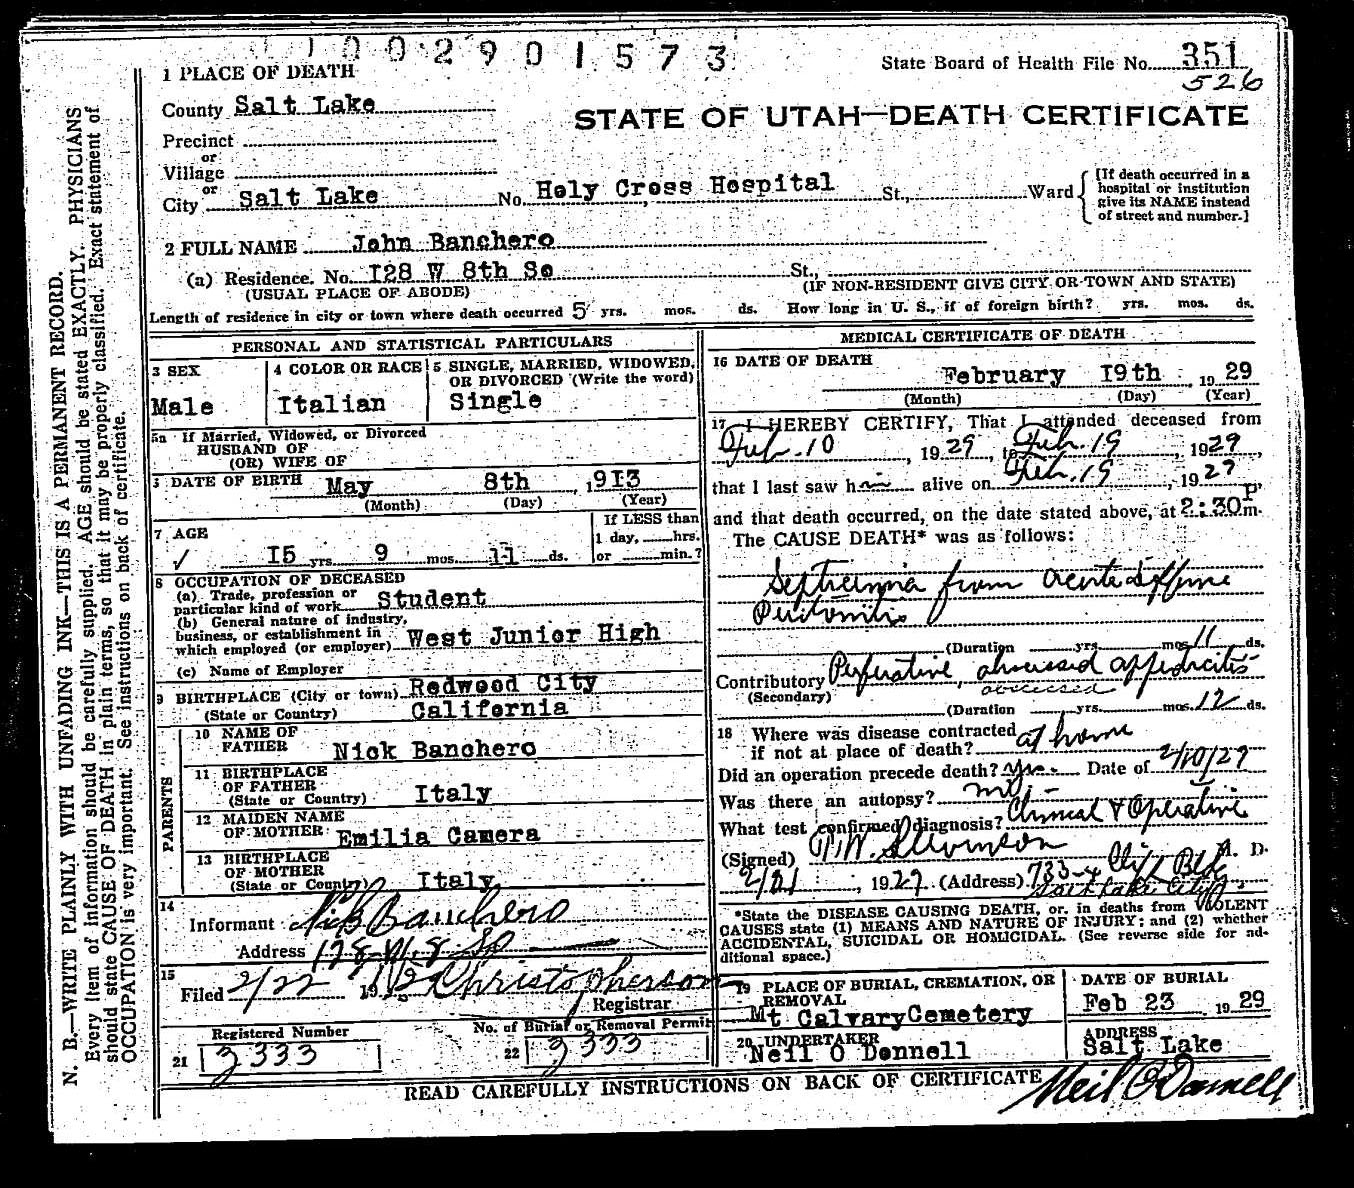 1 0 0 2 9 0 1 5 7 3
State Board of Health File No. 351
526
1 PLACE OF DEATH
County Salt Lake
STATE OF UTAH—DEATH CERTIFICATE
Precinct
or
Village
or
City Salt Lake No. Holy Cross Hospital St., Ward
[If death occurred in a
hospital or institution
give its NAME instead
of street and number.]
2 FULL NAME John Banchero
(a) Residence. No. 128 W 8th So St.,
(USUAL PLACE OF ABODE) (IF NON-RESIDENT GIVE CITY OR TOWN AND STATE)
Length of residence in city or town where death occurred 5 yrs. mos. ds. How long in U. S., if of foreign birth? yrs. mos. ds.
PERSONAL AND STATISTICAL PARTICULARS
3 SEX
Male
4 COLOR OR RACE
Italian
5 SINGLE, MARRIED, WIDOWED,
OR DIVORCED (Write the word)
Single
5a If Married, Widowed, or Divorced
HUSBAND OF
(OR) WIFE OF
DATE OF BIRTH May 8th, 1913
(Month) (Day) (Year)
7 AGE
✓ 15 yrs. 9 mos. 11 ds.
If LESS than
1 day, hrs.
or min.?
8 OCCUPATION OF DECEASED
(a) Trade, profession or
particular kind of work Student
(b) General nature of industry,
business, or establishment in
which employed (or employer) West Junior High
(c) Name of Employer
9 BIRTHPLACE (City or town) Redwood City
(State or Country) California
PARENTS
10 NAME OF
FATHER Nick Banchero
11 BIRTHPLACE
OF FATHER
(State or Country) Italy
12 MAIDEN NAME
OF MOTHER Emilia Camera
13 BIRTHPLACE
OF MOTHER
(State or Country) Italy
14
Informant Nick Banchero
Address 128 W. 8 So
15
Filed 2/22 19 Christopherson
Registrar
Registered Number
21 3333
No. of Burial or Removal Permit
22 3333
MEDICAL CERTIFICATE OF DEATH
16 DATE OF DEATH
February 19th, 1929
(Month) (Day) (Year)
17 I HEREBY CERTIFY, That I attended deceased from
Feb. 10, 1929, to Feb. 19, 1929,
that I last saw him alive on Feb. 19, 1929
and that death occurred, on the date stated above, at 2:30 P. m.
The CAUSE DEATH* was as follows:
Septicemia from acute diffuse
Peritonitis
(Duration yrs. mos. 11 ds.
Contributory Perforative, abscessed appendicitis
(Secondary) abscessed
(Duration yrs. mos. 12 ds.
18 Where was disease contracted
if not at place of death? at home
Did an operation precede death? yes. Date of 2/10/29
Was there an autopsy? no
What test confirmed diagnosis? Clinical & Operative
(Signed) Stevenson M. D.
2/21, 1929 (Address) 733-4 Clift Bldg
Salt Lake City
*State the DISEASE CAUSING DEATH, or in deaths from VIOLENT
CAUSES state (1) MEANS AND NATURE OF INJURY; and (2) whether
ACCIDENTAL, SUICIDAL OR HOMICIDAL. (See reverse side for ad-
ditional space.)
19 PLACE OF BURIAL, CREMATION, OR
REMOVAL
Mt Calvary Cemetery
DATE OF BURIAL
Feb 23 1929
20 UNDERTAKER
Neil O Donnell
ADDRESS
Salt Lake
READ CAREFULLY INSTRUCTIONS ON BACK OF CERTIFICATE
Neil O'Donnell
N. B.—WRITE PLAINLY WITH UNFADING INK—THIS IS A PERMANENT RECORD.
Every item of information should be carefully supplied. AGE should be stated EXACTLY. PHYSICIANS
should state CAUSE OF DEATH in plain terms, so that it may be properly classified. Exact statement of
OCCUPATION is very important. See instructions on back of certificate.